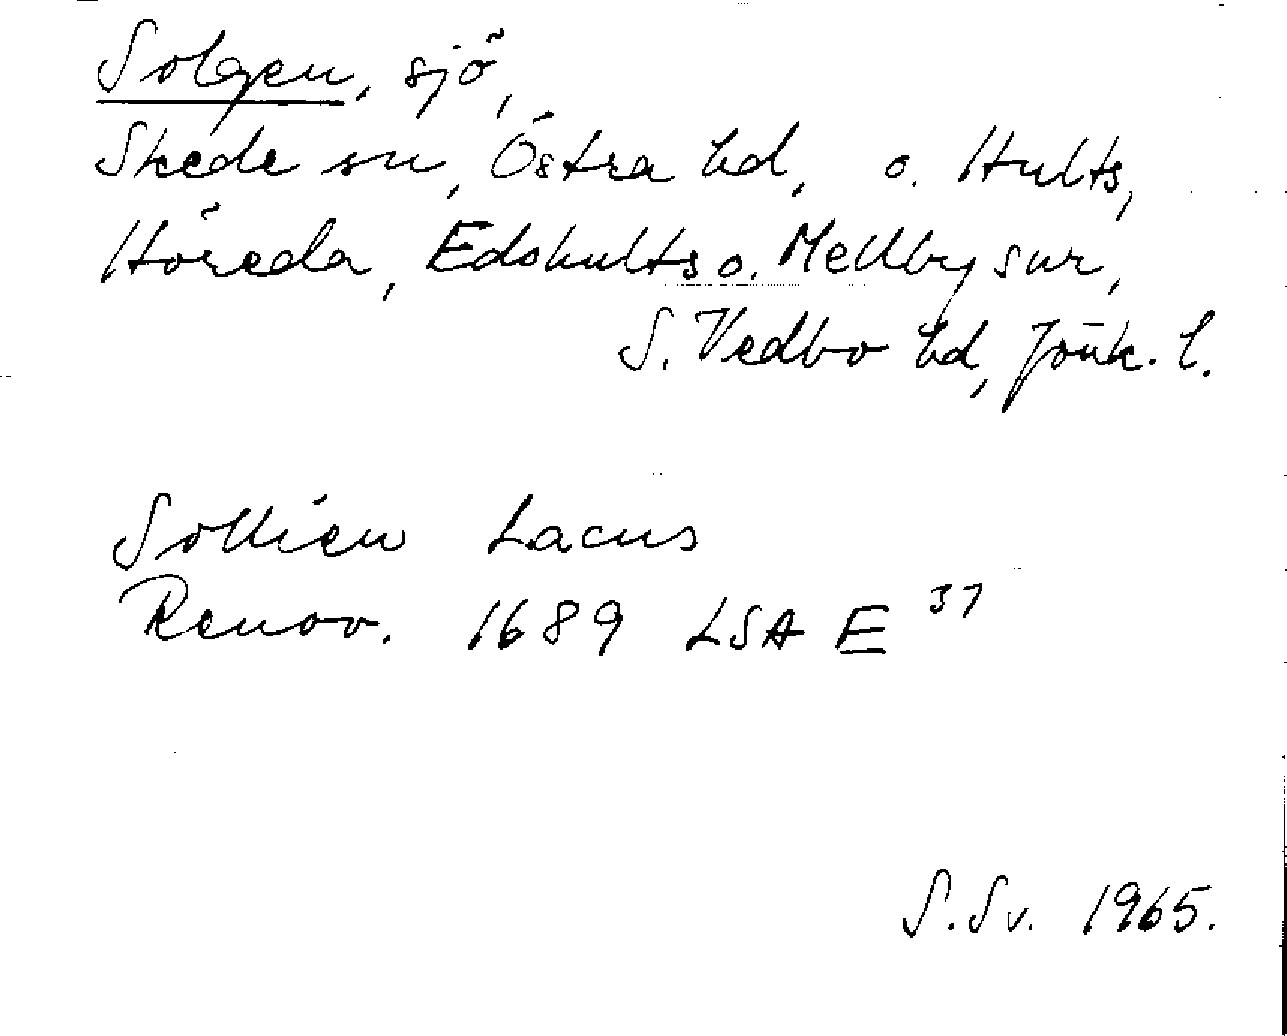 Solgen, sjö,
Skede sn, Östra hd, o. Hults,
Höreda, Edshults o. Mellby snr,
S. Vedbo hd, Jönk. l.
Sollien Lacus
Renov. 1689 LSA E 37
S. Sv. 1965.